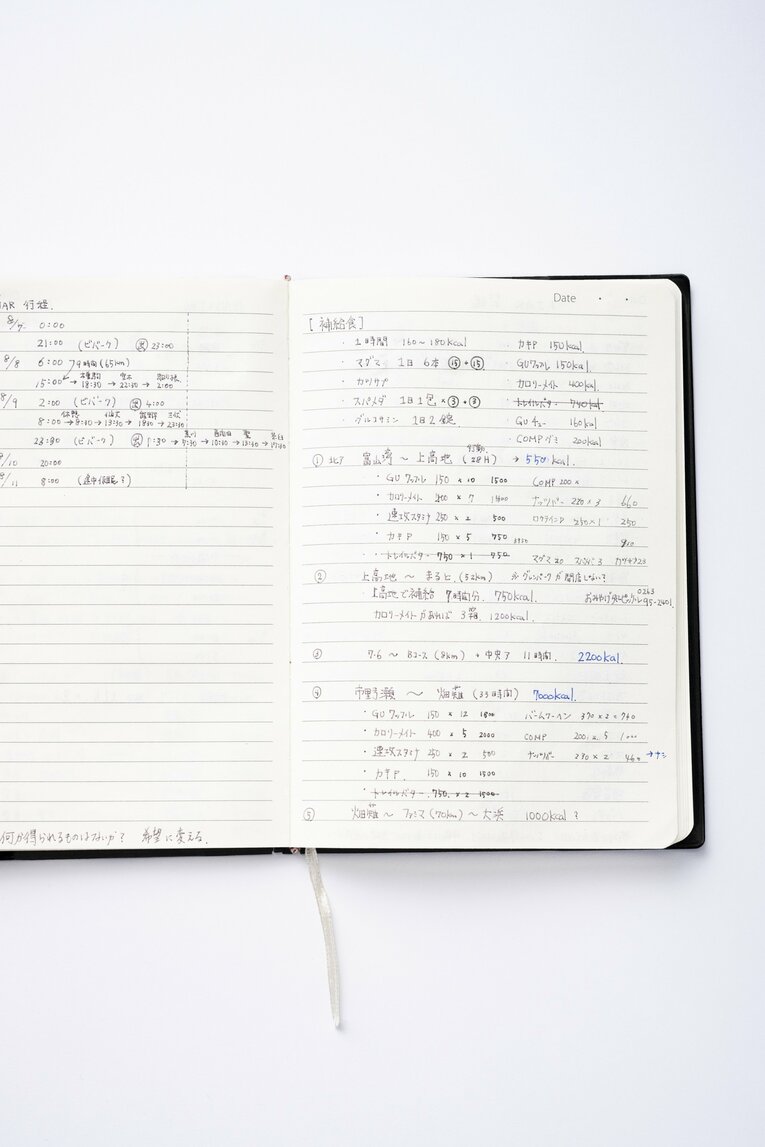 AR 行程.
8/7 0:00
21:00 (ビバーク) 23:00
8/8 6:00 9時間 (65km)
15:00 → 18:30 → 22:30 → 2:00
8/9 2:00 (ビバーク) 4:00
8:00 → 9:30 → 13:30 → 18:30 → 23:30
23:30 (ビバーク) 1:30 → 7:30 → 10:30 → 13:30 → 17:30
/10 20:00
/11 8:00 (途中仮眠?)
何か得られるものはないか? 希望に変える.
Date . .
[補給食]
・1時間 160~180kcal ・カキP 150kcal.
・マグマ 1日 6本 ⑮+⑮ ・GUワッフル 150kcal.
・カツサプ ・カロリーメイト 400kcal.
・スパメダ 1日1包 × ③+③ ・トレイルバター 750kcal
・グルコサミン 1日2錠 ・GU 160kcal
・COMPグミ 200kcal
① 北ア 富山湾 ~ 上高地 (28H) → 5500kcal.
・GUワッフル 150 × 10 1500 COMP 200 ×
・カロリーメイト 200 × 7 1400 ナッツバー 220 × 3 660
・速攻スタミナ 250 × 2 500 250 × 1 250
・カキP 150 × 5 750
・トレイルバター 750 × 1 750 マグマ 20 スパメダ 3
② 上高地 ~ まると (52km) ※グレンパークが閉店しない?
・上高地で補給 7時間分. 750kcal. 0263 95-2401
カロリーメイトがあれば 3箱. 1200kcal.
③ ~ Bコース (8km) + 中央ア 11時間. 2200kcal.
④ 市野瀬 ~ 畑薙 (33時間) 7000kcal.
・GUワッフル 150 × 12 1800 バームクーヘン 370 × 2 = 740
・カロリーメイト 400 × 5 2000 COMP 200 × 5 1000
・速攻スタミナ 250 × 2 500 230 × 2 460 → ナシ
・カキP. 150 × 10 1500
・トレイルバター 750 × 2 1500
⑤ 畑薙 ~ ファミマ (70km) ~ 大浜 1000kcal?